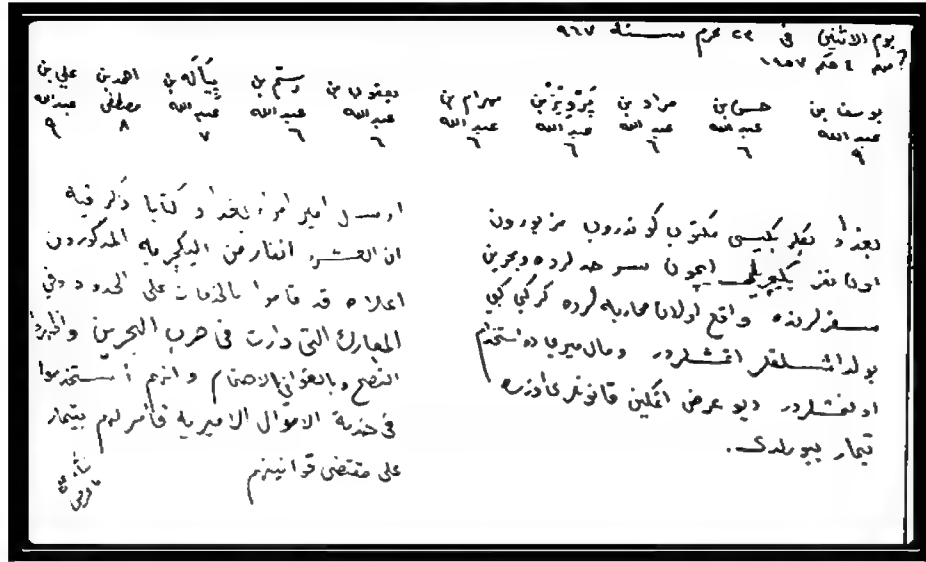 يوم الاثنين في ٢٢ محرم سنة ٩٦٧
٤ حكم
يوسف بن عبد الله ٩ حسن بن عبد الله ٦ مراد بن عبد الله ٦ پرويز بن عبد الله ٦ بهرام بن عبد الله ٦ يعقوب بن عبد الله ٦ رستم بن عبد الله ٦ پياله بن عبد الله ٧ احمد بن مصطفى ٨ علي بن عبد الله ٩
بغداد بكلر بكيسى مكتوب كوندروب مزبورون
اون نفر يكيچريلر ايچون سرحدلرده وبحرين
سفرلرنده واقع اولان محاربه لرده كركي كبي
يولداشلقلر اتمشلردر ومال ميرى ده استخدام
اولنمشلردر ديو عرض اتمكين قانونلرى اوزره
تيمار بيورلدى.
ارسل امير امراء بغداد كتابا ذكر فيه
ان العشرة انفار من اليكيچريه المذكورون
اعلاه قد قاموا بالخدمات على الحدود وفي
المعارك التي دارت في حرب البحرين
النصح وانهم استخدموا
في خدمة الاموال الاميرية فأمر لهم بتيمار
على مقتضى قوانينهم